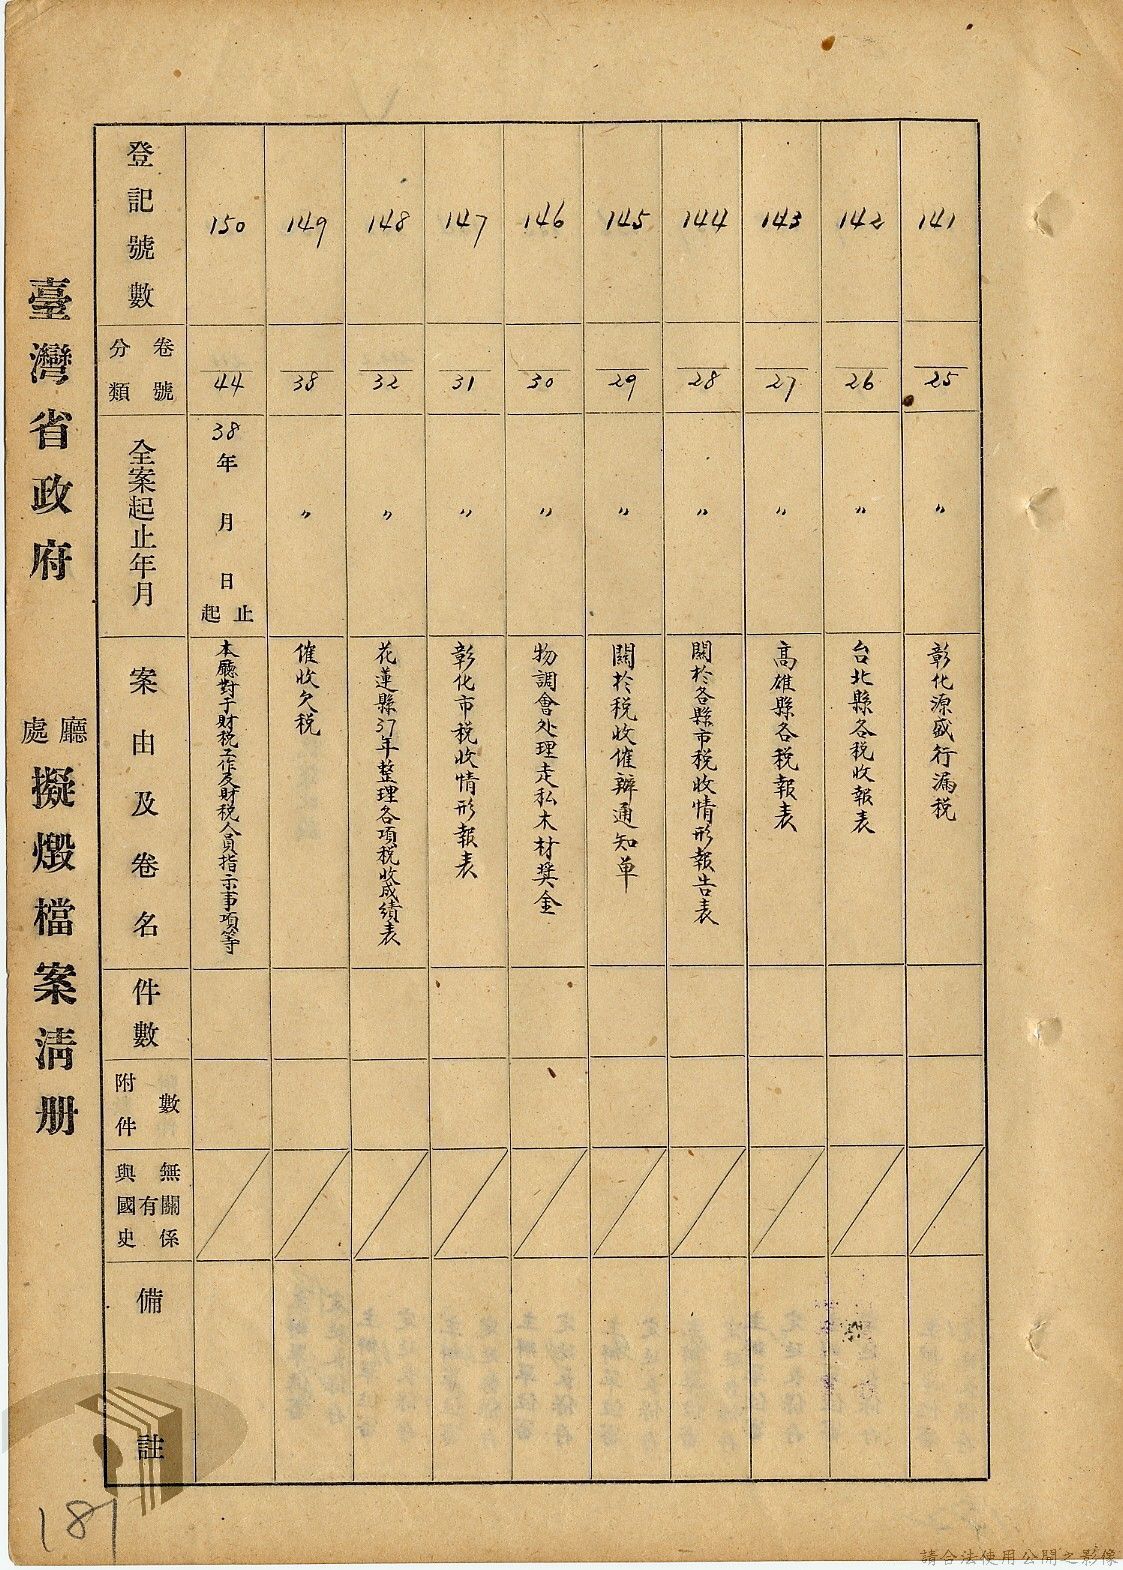 臺灣省政府 廳處 擬燬檔案清册
登記號數
分類 卷號
全案起止年月
案由及卷名
件數
附件數
與國史有無關係
備註
141
25
〃
彰化源盛行漏稅
142
26
〃
台北縣各稅收報表
143
27
〃
高雄縣各稅報表
144
28
〃
關於各縣市稅收情形報告表
145
29
〃
關於稅收催辦通知單
146
30
〃
物調會处理走私木材奬金
147
31
〃
彰化市稅收情形報表
148
32
〃
花蓮縣37年整理各項稅收成績表
149
38
〃
催收欠稅
150
44
38年 月 日起止
本廳對于財稅工作及財稅人員指示事項等
181
請合法使用公開之影像